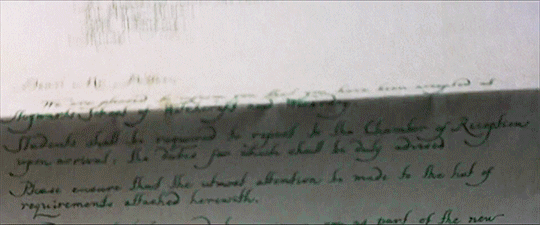 Dear Mr.
We are pleased to inform you that you have been accepted at
Hogwarts School of Witchcraft and Wizardry
Students shall be required to report to the Chamber of Reception
upon arrival, the dates for which shall be duly advised
Please ensure that the utmost attention be made to the list of
requirements attached herewith.
as part of the new